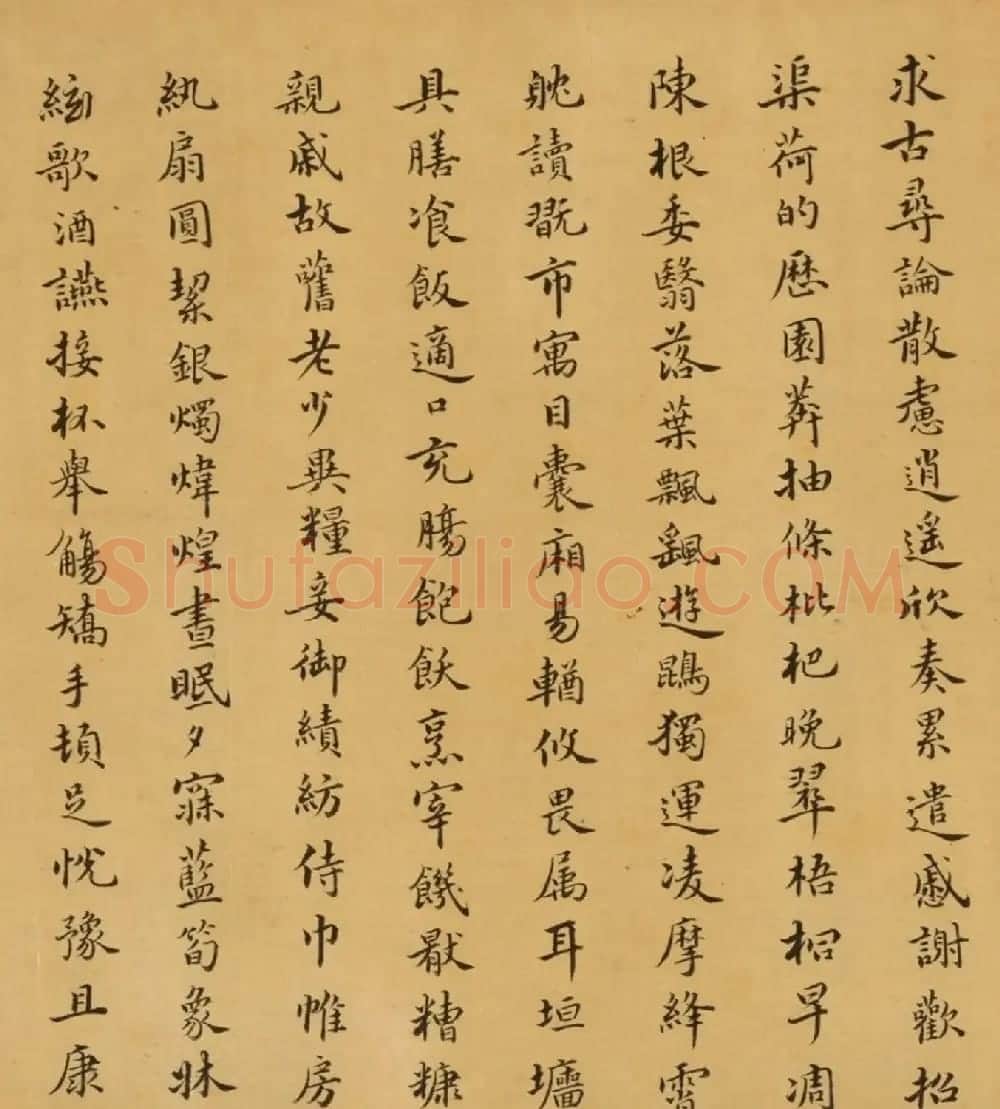 求古尋論散慮逍遥欣奏累遣慼謝歡招
渠荷的歷園莽抽條枇杷晚翠梧桐早凋
陳根委翳落葉飄飖遊鵾獨運凌摩絳霄
躭讀翫市寓目囊廂易輶攸畏属耳垣墻
具膳飡飯適口充腸飽飫烹宰饑猒糟糠
親戚故舊老少異糧妾御績紡侍巾帷房
紈扇圓潔銀燭煒煌晝眠夕寐藍筍象牀
絃歌酒讌接杯舉觴矯手頓足悅豫且康
Shufaziliao.COM